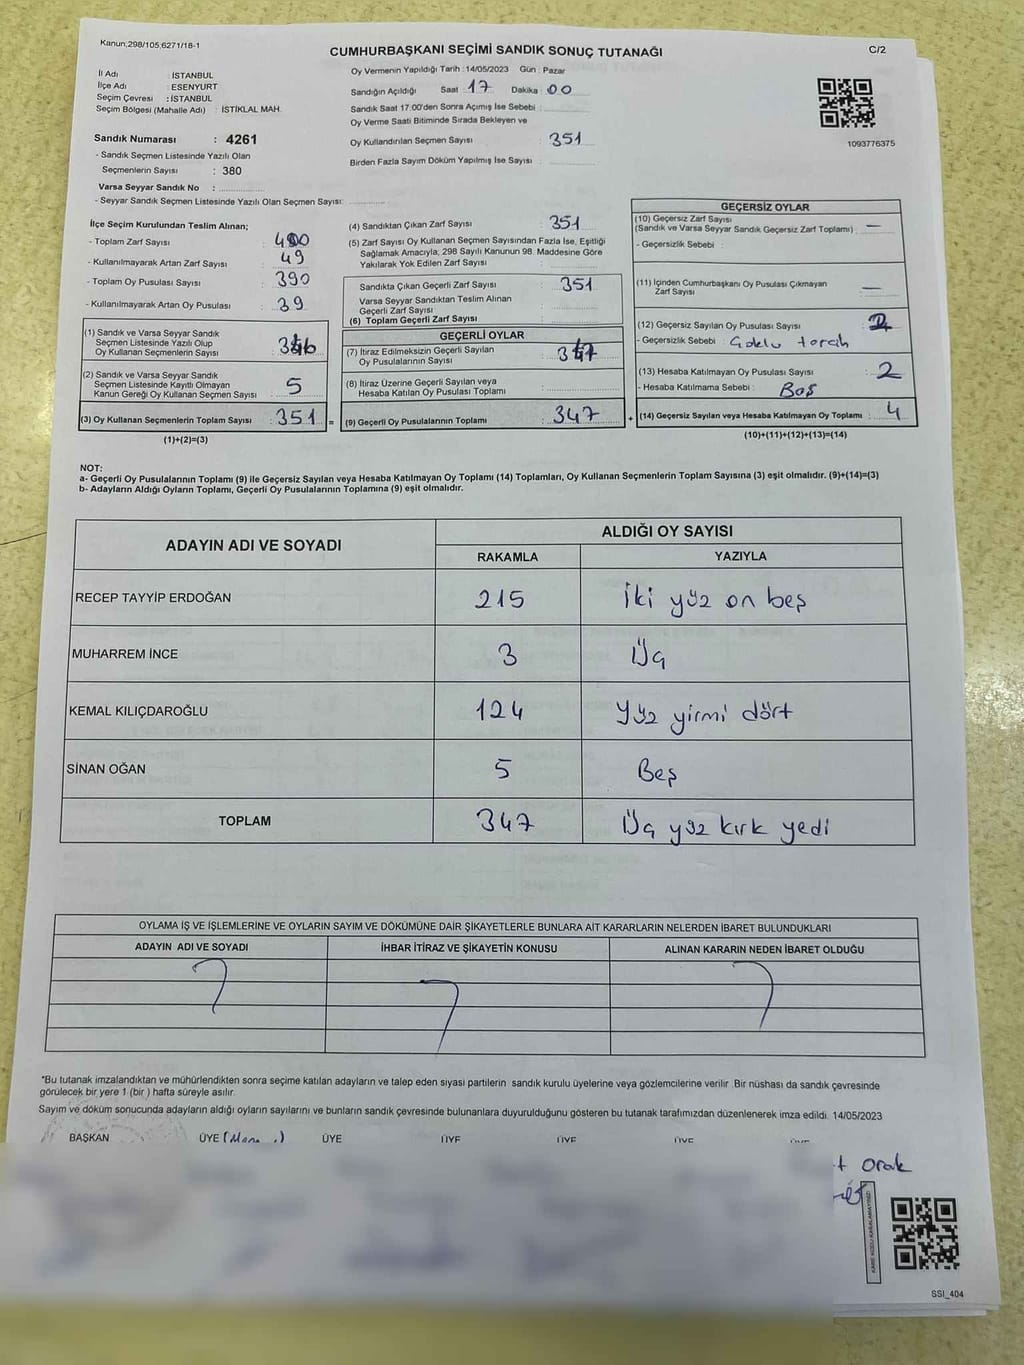 Kanun;298/105,6271/18-1
CUMHURBAŞKANI SEÇİMİ SANDIK SONUÇ TUTANAĞI
C/2
İl Adı : İSTANBUL
İlçe Adı : ESENYURT
Seçim Çevresi : İSTANBUL
Seçim Bölgesi (Mahalle Adı) : İSTİKLAL MAH.
Sandık Numarası : 4261
- Sandık Seçmen Listesinde Yazılı Olan
Seçmenlerin Sayısı : 380
Varsa Seyyar Sandık No :
- Seyyar Sandık Seçmen Listesinde Yazılı Olan Seçmen Sayısı:
Oy Vermenin Yapıldığı Tarih : 14/05/2023 Gün : Pazar
Sandığın Açıldığı Saat : 17 Dakika : 00
Sandık Saat 17:00'den Sonra Açımış İse Sebebi :
Oy Verme Saati Bitiminde Sırada Bekleyen ve
Oy Kullandırılan Seçmen Sayısı : 351
Birden Fazla Sayım Döküm Yapılmış İse Sayısı :
1093776375
İlçe Seçim Kurulundan Teslim Alınan;
- Toplam Zarf Sayısı : 400
- Kullanılmayarak Artan Zarf Sayısı : 49
- Toplam Oy Pusulası Sayısı : 390
- Kullanılmayarak Artan Oy Pusulası : 39
(1) Sandık ve Varsa Seyyar Sandık
Seçmen Listesinde Yazılı Olup
Oy Kullanan Seçmenlerin Sayısı : 346
(2) Sandık ve Varsa Seyyar Sandık
Seçmen Listesinde Kayıtlı Olmayan
Kanun Gereği Oy Kullanan Seçmen Sayısı : 5
(3) Oy Kullanan Seçmenlerin Toplam Sayısı : 351 =
(1)+(2)=(3)
(4) Sandıktan Çıkan Zarf Sayısı : 351
(5) Zarf Sayısı Oy Kullanan Seçmen Sayısından Fazla İse, Eşitliği
Sağlamak Amacıyla; 298 Sayılı Kanunun 98. Maddesine Göre
Yakılarak Yok Edilen Zarf Sayısı :
Sandıkta Çıkan Geçerli Zarf Sayısı : 351
Varsa Seyyar Sandıktan Teslim Alınan
Geçerli Zarf Sayısı :
(6) Toplam Geçerli Zarf Sayısı :
GEÇERLİ OYLAR
(7) İtiraz Edilmeksizin Geçerli Sayılan
Oy Pusulalarının Sayısı : 347
(8) İtiraz Üzerine Geçerli Sayılan veya
Hesaba Katılan Oy Pusulası Toplamı :
(9) Geçerli Oy Pusulalarının Toplamı : 347 +
GEÇERSİZ OYLAR
(10) Geçersiz Zarf Sayısı
(Sandık ve Varsa Seyyar Sandık Geçersiz Zarf Toplamı) : —
- Geçersizlik Sebebi :
(11) İçinden Cumhurbaşkanı Oy Pusulası Çıkmayan
Zarf Sayısı : —
(12) Geçersiz Sayılan Oy Pusulası Sayısı : 2
- Geçersizlik Sebebi : Goklu tercih
(13) Hesaba Katılmayan Oy Pusulası Sayısı : 2
- Hesaba Katılmama Sebebi : Boş
(14) Geçersiz Sayılan veya Hesaba Katılmayan Oy Toplamı : 4
(10)+(11)+(12)+(13)=(14)
NOT:
a- Geçerli Oy Pusulalarının Toplamı (9) ile Geçersiz Sayılan veya Hesaba Katılmayan Oy Toplamı (14) Toplamları, Oy Kullanan Seçmenlerin Toplam Sayısına (3) eşit olmalıdır. (9)+(14)=(3)
b- Adayların Aldığı Oyların Toplamı, Geçerli Oy Pusulalarının Toplamına (9) eşit olmalıdır.
ADAYIN ADI VE SOYADI ALDIĞI OY SAYISI
RAKAMLA YAZIYLA
RECEP TAYYİP ERDOĞAN 215 iki yüz on beş
MUHARREM İNCE 3 Üç
KEMAL KILIÇDAROĞLU 124 Yüz yirmi dört
SİNAN OĞAN 5 Beş
TOPLAM 347 Üç yüz kırk yedi
OYLAMA İŞ VE İŞLEMLERİNE VE OYLARIN SAYIM VE DÖKÜMÜNE DAİR ŞİKAYETLERLE BUNLARA AİT KARARLARIN NELERDEN İBARET BULUNDUKLARI
ADAYIN ADI VE SOYADI İHBAR İTİRAZ VE ŞİKAYETİN KONUSU ALINAN KARARIN NEDEN İBARET OLDUĞU
"Bu tutanak imzalandıktan ve mühürlendikten sonra seçime katılan adayların ve talep eden siyasi partilerin sandık kurulu üyelerine veya gözlemcilerine verilir. Bir nüshası da sandık çevresinde
görülecek bir yere 1 (bir ) hafta süreyle asılır.
Sayım ve döküm sonucunda adayların aldığı oyların sayılarını ve bunların sandık çevresinde bulunanlara duyurulduğunu gösteren bu tutanak tarafımızdan düzenlenerek imza edildi. 14/05/2023
BAŞKAN ÜYE ÜYE ÜYE ÜYE ÜYE
orak
KARE KODU KARALAMAYINIZ!
SSİ_404